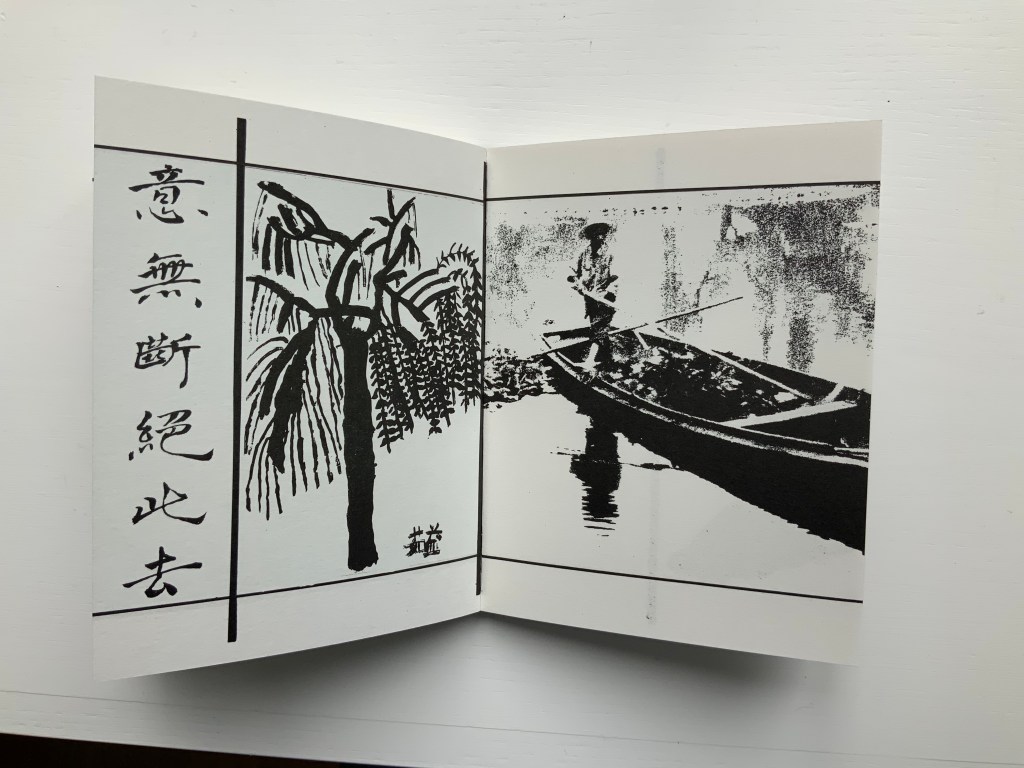 意無斷絕此去